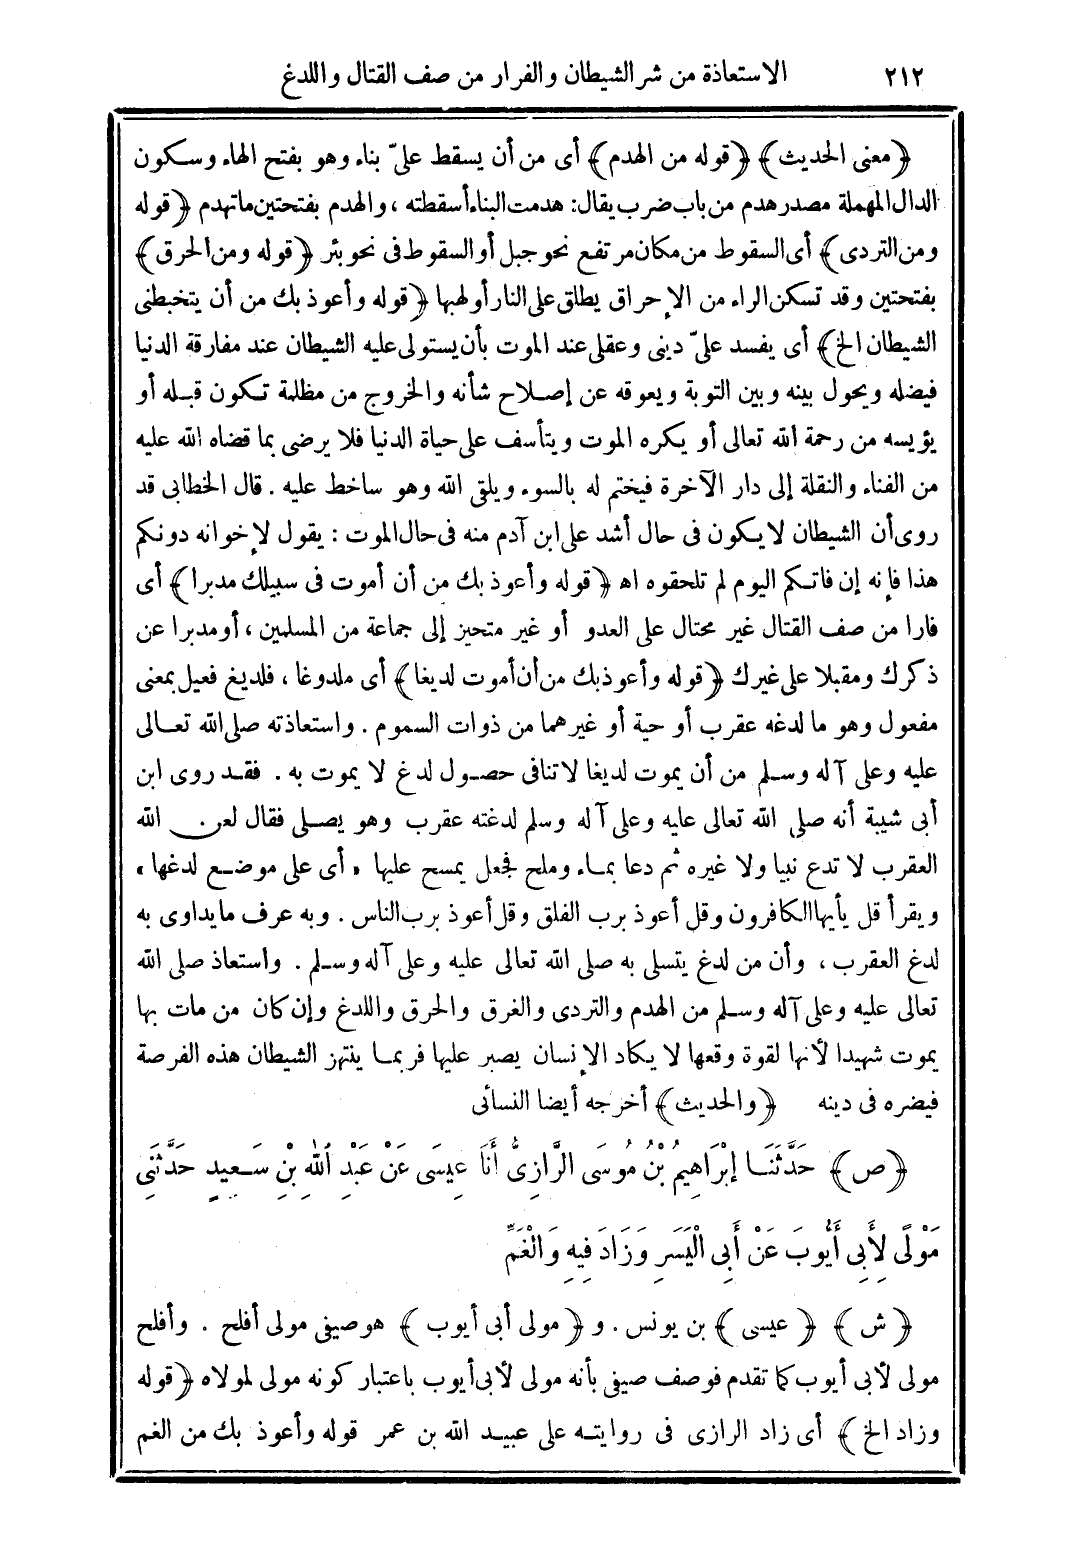 ٢١٢ الاستعاذة من شر الشيطان والفرار من صف القتال واللدغ
﴿معنى الحديث﴾ ﴿قوله من الهدم﴾ أى من أن يسقط علىّ بناء وهو بفتح الهاء وسكون
الدال المهملة مصدر هدم من باب ضرب يقال: هدمت البناء أسقطته ، والهدم بفتحتين ماتهدم ﴿قوله
ومن التردى﴾ أى السقوط من مكان مرتفع نحو جبل أو السقوط فى نحو بئر ﴿قوله ومن الحرق﴾
بفتحتين وقد تسكن الراء من الإحراق يطلق على النار أو لهبها ﴿قوله وأعوذ بك من أن يتخبطنى
الشيطان الخ﴾ أى يفسد علىّ دينى وعقلى عند الموت بأن يستولى عليه الشيطان عند مفارقة الدنيا
فيضله ويحول بينه وبين التوبة ويعوقه عن إصلاح شأنه والخروج من مظلمة تكون قبله أو
يؤيسه من رحمة الله تعالى أو يكره الموت ويتأسف على حياة الدنيا فلا يرضى بما قضاه الله عليه
من الفناء والنقلة إلى دار الآخرة فيختم له بالسوء ويلقى الله وهو ساخط عليه . قال الخطابى قد
روى أن الشيطان لا يكون فى حال أشد على ابن آدم منه فى حال الموت : يقول لإخوانه دونكم
هذا فإنه إن فاتكم اليوم لم تلحقوه اهـ ﴿قوله وأعوذ بك من أن أموت فى سبيلك مدبرا﴾ أى
فارا من صف القتال غير محتال على العدو أو غير متحيز إلى جماعة من المسلمين ، أو مدبرا عن
ذكرك ومقبلا على غيرك ﴿قوله وأعوذبك من أن أموت لديغا﴾ أى ملدوغا ، فلديغ فعيل بمعنى
مفعول وهو ما لدغه عقرب أو حية أو غيرهما من ذوات السموم . واستعاذته صلى الله تعالى
عليه وعلى آله وسلم من أن يموت لديغا لاتنافى حصول لدغ لا يموت به . فقد روى ابن
أبى شيبة أنه صلى الله تعالى عليه وعلى آله وسلم لدغته عقرب وهو يصلى فقال لعن الله
العقرب لا تدع نبيا ولا غيره ثم دعا بماء وملح فجعل يمسح عليها «أى على موضع لدغها»
ويقرأ قل يأيها الكافرون وقل أعوذ برب الفلق وقل أعوذ برب الناس . وبه عرف مايداوى به
لدغ العقرب ، وأن من لدغ يتسلى به صلى الله تعالى عليه وعلى آله وسلم . واستعاذ صلى الله
تعالى عليه وعلى آله وسلم من الهدم والتردى والغرق والحرق واللدغ وإن كان من مات بها
يموت شهيدا لأنها لقوة وقعها لا يكاد الإنسان يصبر عليها فربما ينتهز الشيطان هذه الفرصة
فيضره فى دينه ﴿والحديث﴾ أخرجه أيضا النسائى
﴿ص﴾ حَدَّثَنَا إِبْرَاهِيمُ بْنُ مُوسَى الرَّازِىُّ أَنَا عِيسَى عَنْ عَبْدِ اللهِ بْنِ سَعِيدٍ حَدَّثَنِى
مَوْلًى لِأَبِى أَيُّوبَ عَنْ أَبِى الْيَسَرِ وَزَادَ فِيهِ وَالْغَمِّ
﴿ش﴾ ﴿عيسى﴾ بن يونس . و﴿مولى أبى أيوب﴾ هو صيفى مولى أفلح . وأفلح
مولى لأبى أيوب كما تقدم فوصف صيفى بأنه مولى لأبى أيوب باعتبار كونه مولى لمولاه ﴿قوله
وزاد الخ﴾ أى زاد الرازى فى روايته على عبيد الله بن عمر قوله وأعوذ بك من الغم